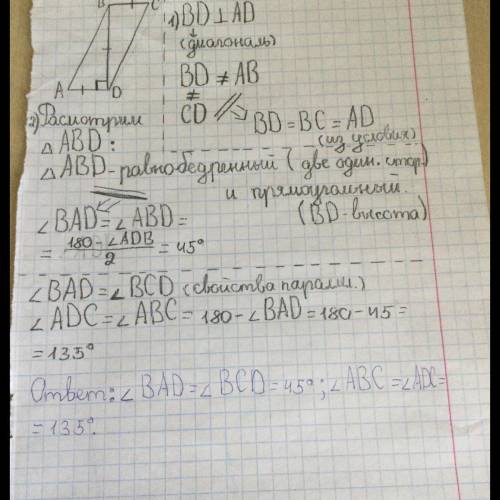 B C
A D
1) BD ⊥ AD
(диагональ)
BD ≠ AB
≠
CD
BD = BC = AD
(из условия)
2) Расмотрим
△ ABD:
△ ABD - равнобедренный (две один. стор.)
и прямоугольный.
(BD - высота)
∠BAD = ∠ABD =
= (180 - ∠ADB)/2 = 45°
∠BAD = ∠BCD (свойства паралл.)
∠ADC = ∠ABC = 180 - ∠BAD = 180 - 45 =
= 135°
Ответ: ∠BAD = ∠BCD = 45°; ∠ABC = ∠ADC =
= 135°.